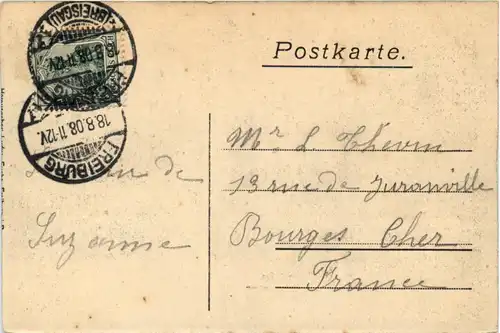 Postkarte.
FREIBURG
(BREISGAU)
18.8.08.11-12V.
FREIBURG
18.8.08.11-12V.
de
Suzanne
Mr L Thevin
13 rue de Juranville
Bourges Cher
France